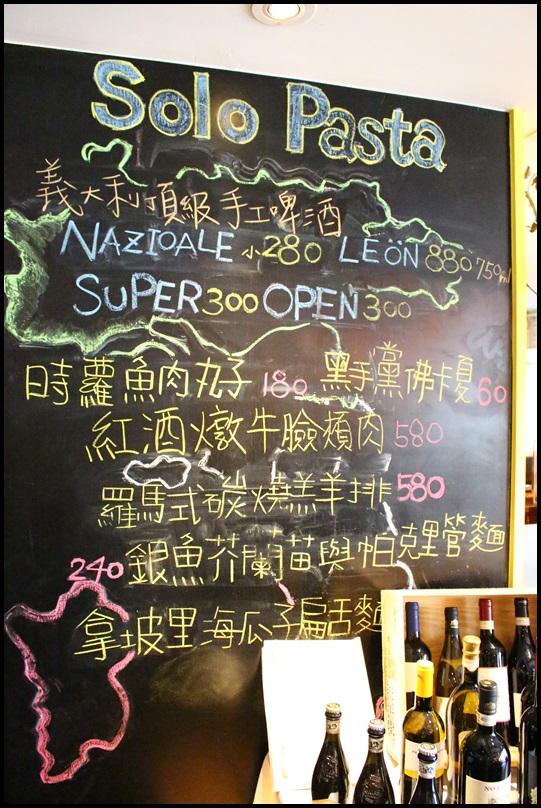 Solo Pasta
義大利頂級手工啤酒
NAZIOALE 小280 LEÖN 880 750ml
SUPER 300 OPEN 300
時蘿魚肉丸子 180 黑手黨佛卡夏 60
紅酒燉牛臉頰肉 580
羅馬式碳燒羔羊排 580
240 銀魚芥蘭苗與帕克里管麵
拿坡里海瓜子扁舌麵